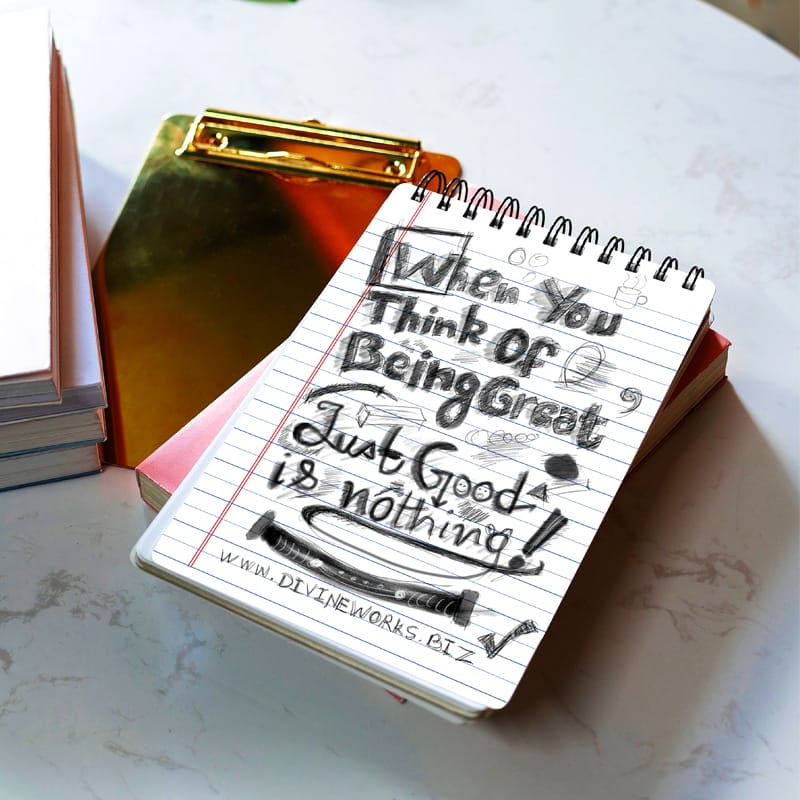 When You
Think Of
Being Great
Just Good
is nothing!
WWW.DIVINEWORKS.BIZ